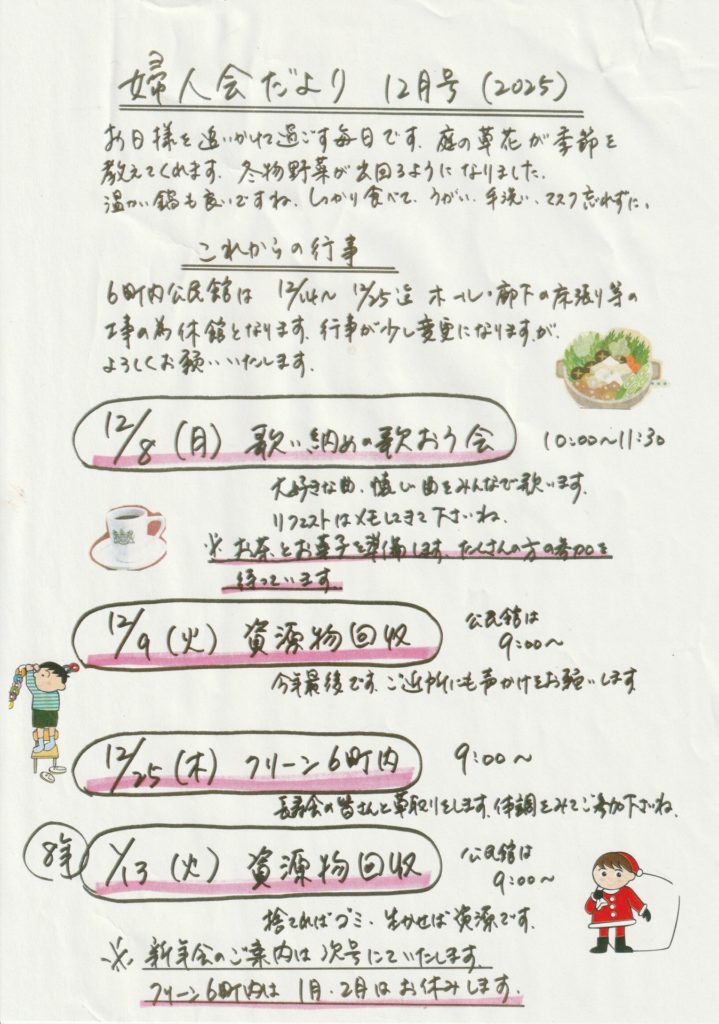 婦人会だより 12月号(2025)
お日様を追いかけて過ごす毎日です。庭の草花が季節を
教えてくれます。冬物野菜が出回るようになりました。
温かい鍋も良いですね。しっかり食べて、うがい、手洗い、マスク忘れずに。
これからの行事
6町内公民館は 12/14～12/25迄 ホール・廊下の床張り等の
工事の為休館となります。行事が少し変更になりますが、
よろしくお願いいたします。
12/8(月) 歌い納めの歌おう会 10:00～11:30
大好きな曲、懐しい曲をみんなで歌います。
リクエストはメモしてきて下さいね。
※ お茶とお菓子を準備します。たくさんの方の参加を
待っています。
12/9(火) 資源物回収 公民館は
9:00～
今年最後です。ご近所にも声かけをお願いします
12/25(木) クリーン6町内 9:00～
長寿会の皆さんと草取りをします。体調をみてご参加下さいね。
8年 1/13(火) 資源物回収 公民館は
9:00～
捨てればゴミ・生かせば資源です。
※ 新年会のご案内は次号にていたします。
クリーン6町内は 1月・2月はお休みします。